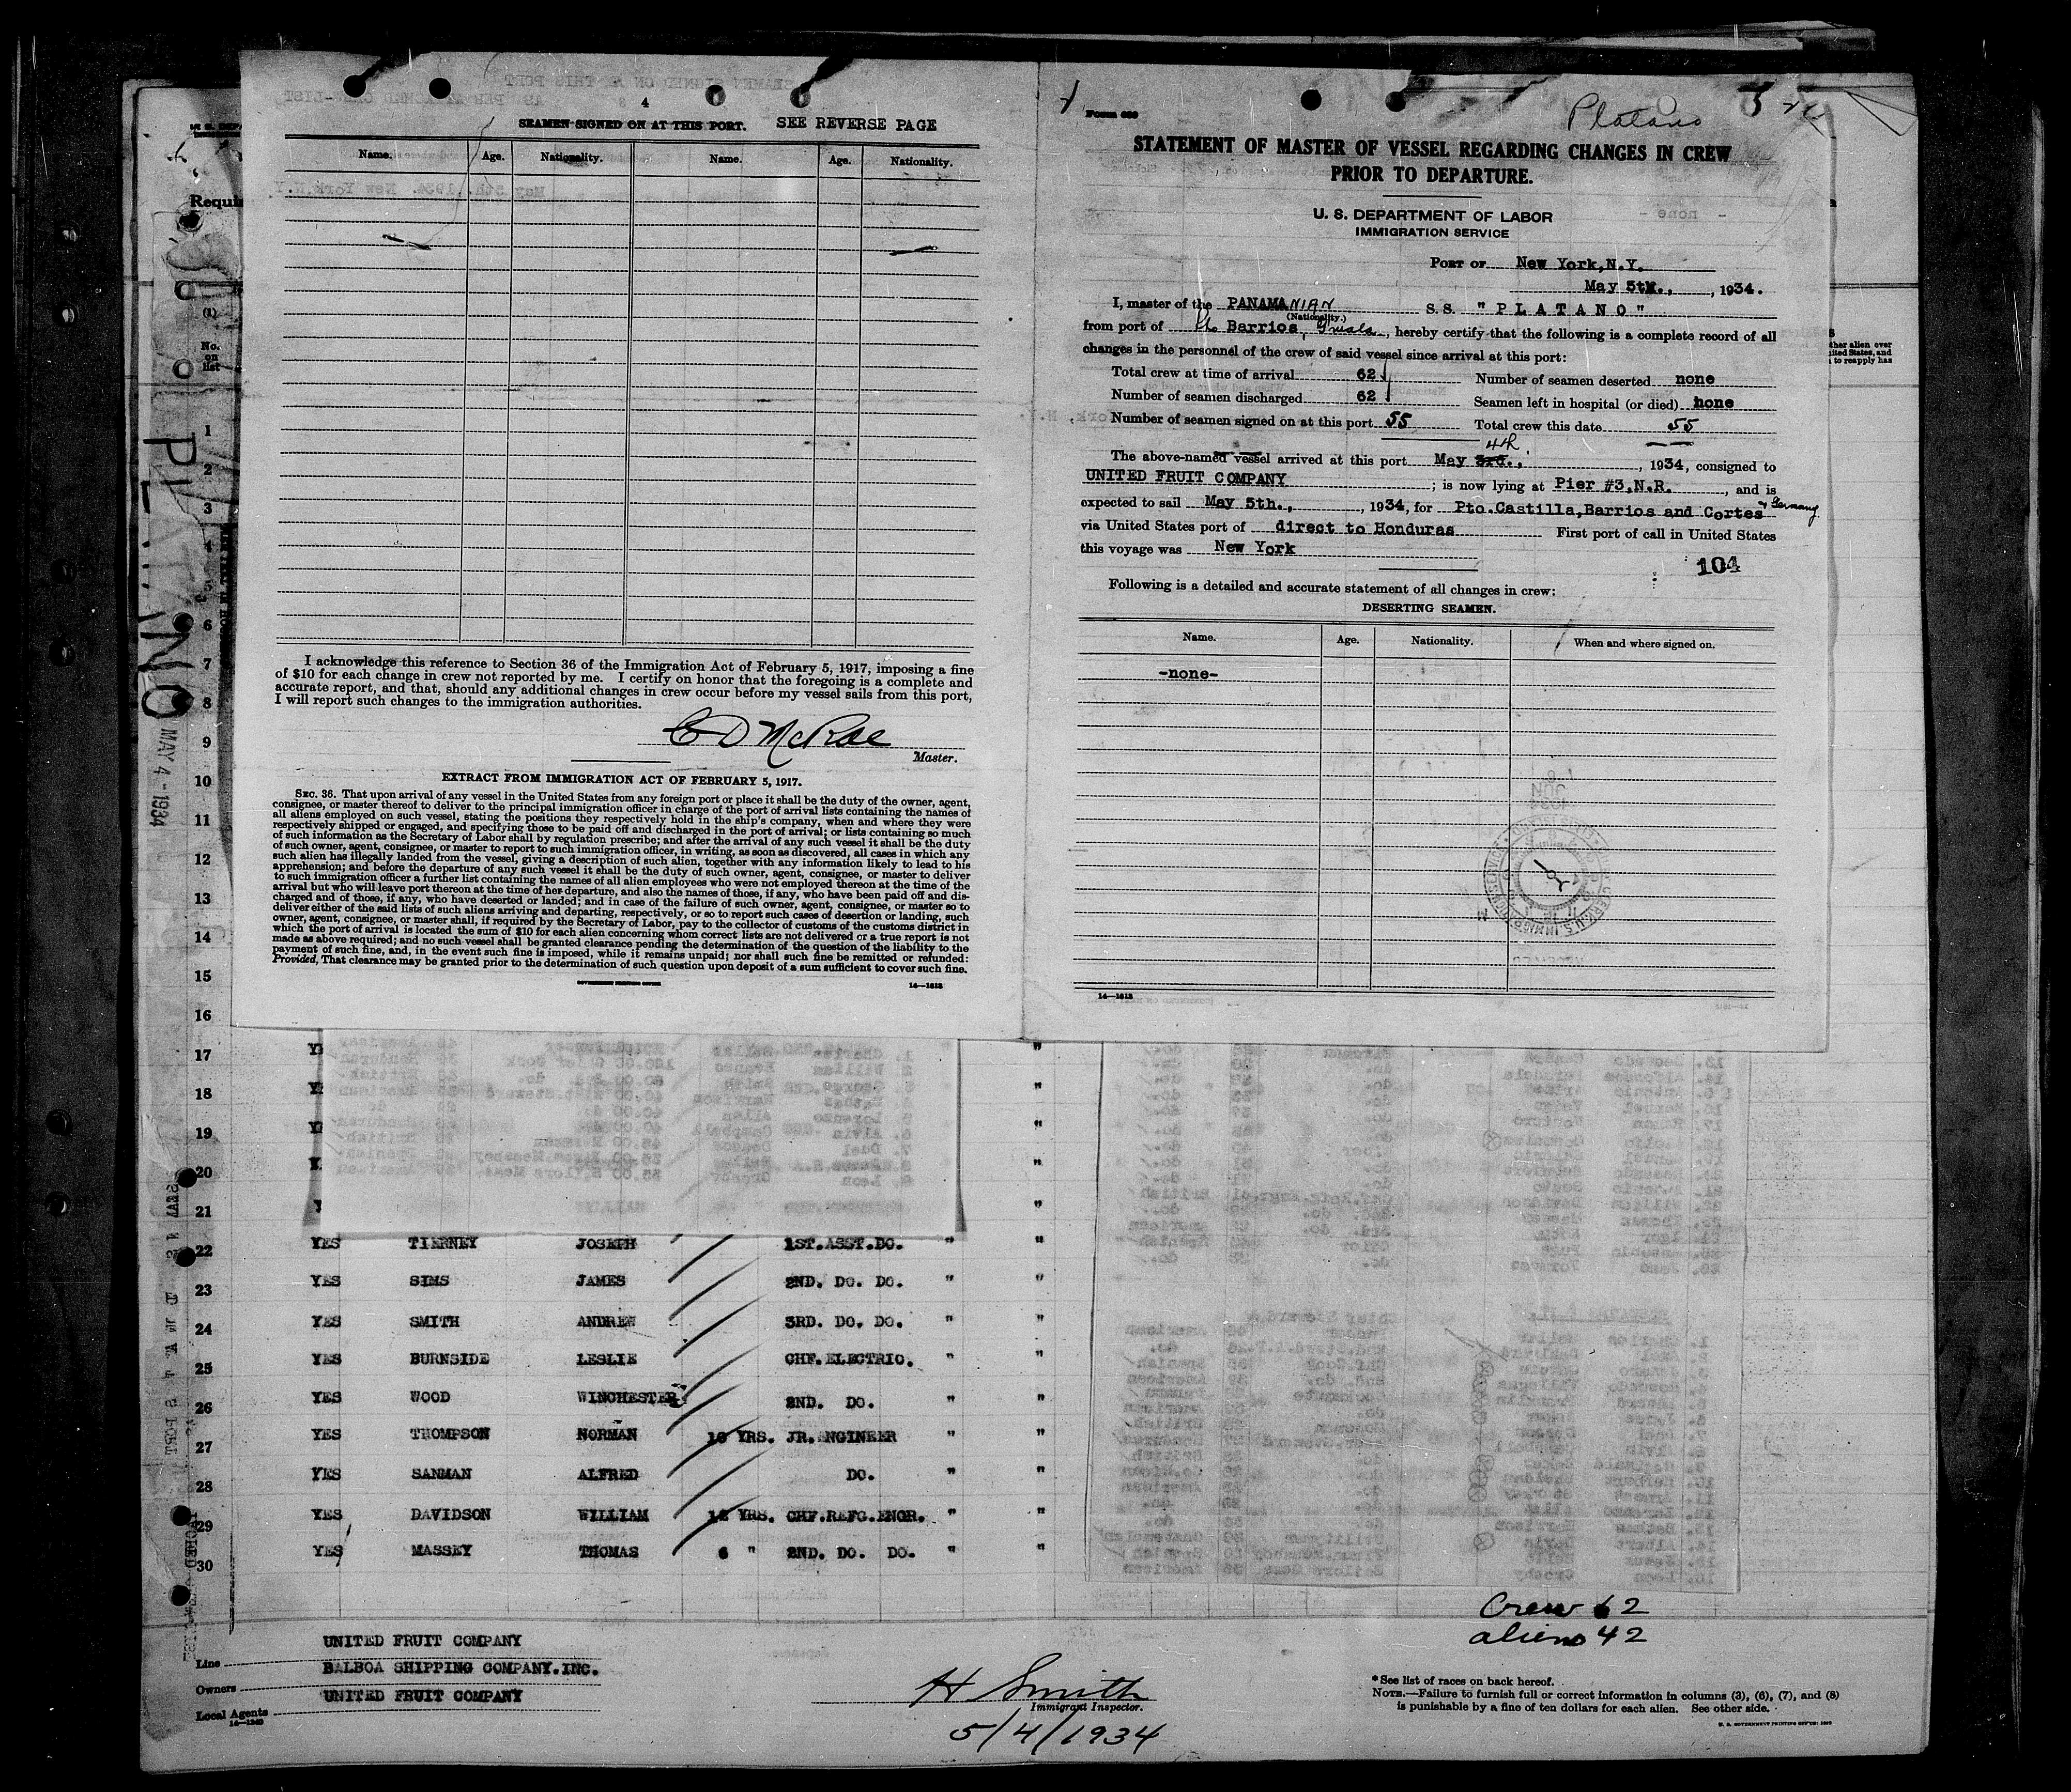 4
SEAMEN SIGNED ON AT THIS PORT. SEE REVERSE PAGE
Name. Age. Nationality. Name. Age. Nationality.
I acknowledge this reference to Section 36 of the Immigration Act of February 5, 1917, imposing a fine
of $10 for each change in crew not reported by me. I certify on honor that the foregoing is a complete and
accurate report, and that, should any additional changes in crew occur before my vessel sails from this port,
I will report such changes to the immigration authorities.
C D McRae
Master.
EXTRACT FROM IMMIGRATION ACT OF FEBRUARY 5, 1917.
SEC. 36. That upon arrival of any vessel in the United States from any foreign port or place it shall be the duty of the owner, agent,
consignee, or master thereof to deliver to the principal immigration officer in charge of the port of arrival lists containing the names of
all aliens employed on such vessel, stating the positions they respectively hold in the ship's company, when and where they were
respectively shipped or engaged, and specifying those to be paid off and discharged in the port of arrival; or lists containing so much
of such information as the Secretary of Labor shall by regulation prescribe; and after the arrival of any such vessel it shall be the duty
of such owner, agent, consignee, or master to report to such immigration officer, in writing, as soon as discovered, all cases in which any
such alien has illegally landed from the vessel, giving a description of such alien, together with any information likely to lead to his
apprehension; and before the departure of any such vessel it shall be the duty of such owner, agent, consignee, or master to deliver
to such immigration officer a further list containing the names of all alien employees who were not employed thereon at the time of the
arrival but who will leave port thereon at the time of her departure, and also the names of those, if any, who have been paid off and dis-
charged and of those, if any, who have deserted or landed; and in case of the failure of such owner, agent, consignee, or master so to
deliver either of the said lists of such aliens arriving and departing, respectively, or so to report such cases of desertion or landing, such
owner, agent, consignee, or master shall, if required by the Secretary of Labor, pay to the collector of customs of the customs district in
which the port of arrival is located the sum of $10 for each alien concerning whom correct lists are not delivered or a true report is not
made as above required; and no such vessel shall be granted clearance pending the determination of the question of the liability to the
payment of such fine, and, in the event such fine is imposed, while it remains unpaid; nor shall such fine be remitted or refunded:
Provided, That clearance may be granted prior to the determination of such question upon deposit of a sum sufficient to cover such fine.
GOVERNMENT PRINTING OFFICE 14—1613
Form 689
Platano
STATEMENT OF MASTER OF VESSEL REGARDING CHANGES IN CREW
PRIOR TO DEPARTURE.
U. S. DEPARTMENT OF LABOR
IMMIGRATION SERVICE
PORT OF New York, N.Y.
May 5th., , 1934.
I, master of the PANAMANIAN S.S. "PLATANO"
(Nationality.)
from port of Pto Barrios, Guala, hereby certify that the following is a complete record of all
changes in the personnel of the crew of said vessel since arrival at this port:
Total crew at time of arrival 62 Number of seamen deserted none
Number of seamen discharged 62 Seamen left in hospital (or died) none
Number of seamen signed on at this port 55 Total crew this date 55
4th
The above-named vessel arrived at this port May 3rd., , 1934, consigned to
UNITED FRUIT COMPANY ; is now lying at Pier #3, N.R. , and is
expected to sail May 5th., , 1934, for Pto. Castilla, Barrios and Cortes + Germany
via United States port of direct to Honduras First port of call in United States
this voyage was New York
104
Following is a detailed and accurate statement of all changes in crew:
DESERTING SEAMEN.
Name. Age. Nationality. When and where signed on.
-none-
14—1613
Requi
(1)
No.
on
list
PLATANO
MAY 4 - 1934
1
2
3
4
5
6
7
8
9
10
11
12
13
14
15
16
17
18
19
20
21
22 YES TIERNEY JOSEPH 1ST. ASST. DO. " "
23 YES SIMS JAMES 2ND. DO. DO. " "
24 YES SMITH ANDREW 3RD. DO. DO. " "
25 YES BURNSIDE LESLIE CHF. ELECTRIC. " "
26 YES WOOD WINCHESTER 2ND. DO. " "
27 YES THOMPSON NORMAN 10 YRS. JR. ENGINEER " "
28 YES SANMAN ALFRED DO. " "
29 YES DAVIDSON WILLIAM 12 YRS. CHF. REFG. ENGR. " "
30 YES MASSEY THOMAS 6 " 2ND. DO. DO. " "
Crew 62
aliens 42
Line UNITED FRUIT COMPANY
Owners BALBOA SHIPPING COMPANY. INC.
Local Agents UNITED FRUIT COMPANY
14—1240
H Smith
Immigrant Inspector.
5/4/1934
* See list of races on back hereof.
NOTE.—Failure to furnish full or correct information in columns (3), (6), (7), and (8)
is punishable by a fine of ten dollars for each alien. See other side.
ther alien ever
ited States, and
to reapply has